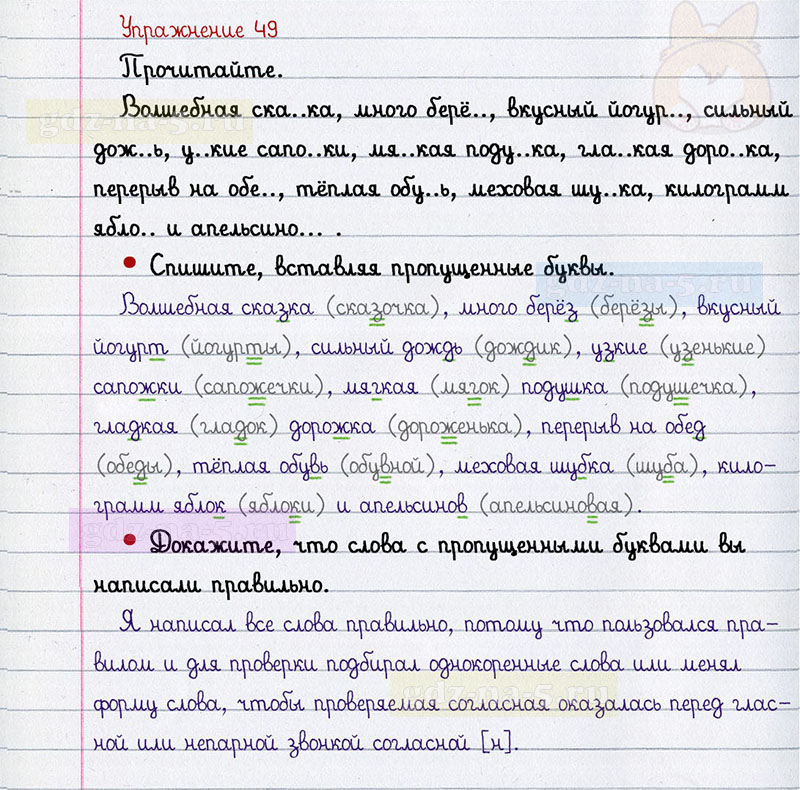 Упражнение 49
Прочитайте.
Волшебная ска..ка, много берё.., вкусный йогур.., сильный
дож..ь, у..кие сапо..ки, мя..кая поду..ка, гла..кая доро..ка,
перерыв на обе.., тёплая обу..ь, меховая шу..ка, килограмм
ябло.. и апельсино... .
• Спишите, вставляя пропущенные буквы.
Волшебная сказка (сказочка), много берёз (берёзы), вкусный
йогурт (йогурты), сильный дождь (дождик), узкие (узенькие)
сапожки (сапожечки), мягкая (мягок) подушка (подушечка),
гладкая (гладок) дорожка (дороженька), перерыв на обед
(обеды), тёплая обувь (обувной), меховая шубка (шуба), кило-
грамм яблок (яблоки) и апельсинов (апельсиновая).
• Докажите, что слова с пропущенными буквами вы
написали правильно.
Я написал все слова правильно, потому что пользовался пра-
вилом и для проверки подбирал однокоренные слова или менял
форму слова, чтобы проверяемая согласная оказалась перед глас-
ной или непарной звонкой согласной [н].
gdz-na-5.ru
gdz-na-5.ru
gdz-na-5.ru
gdz-na-5.ru